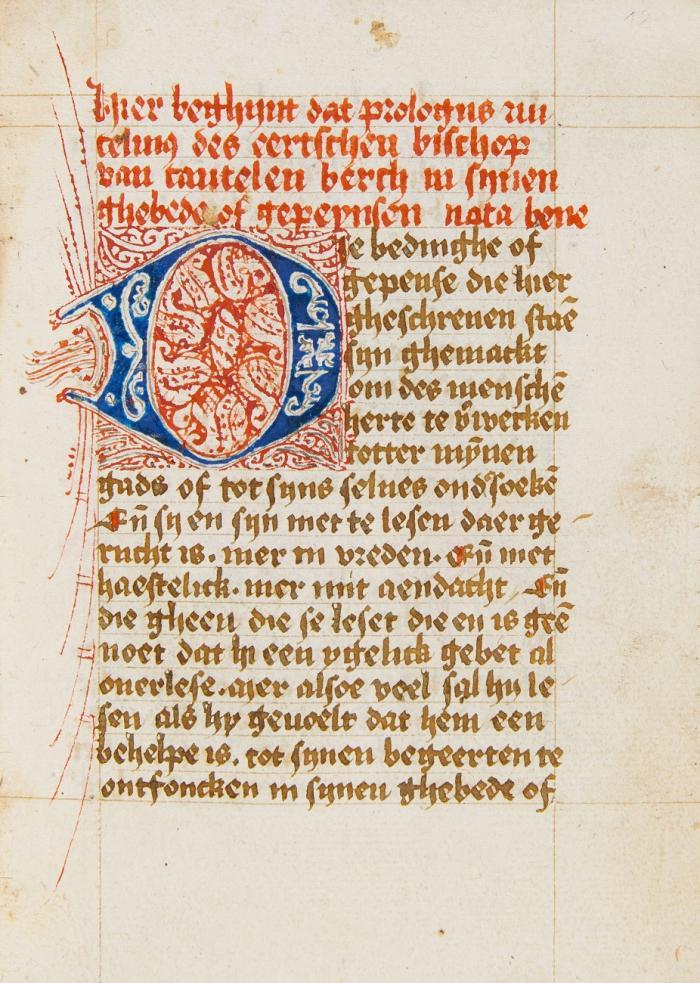 Hier beghijnt dat prologus an
celmus des eertschen bischop
van cantelen berch in sijnen
ghebede of gepeynsen nota bene
Die bedinghe of
gepense die hier
gheschreuen staē
sijn ghemackt
om des menschē
herte te v̄wecken
totter mȳnen
gads of tot sijns selues ondersoekē
Eñ sij en sijn met te lesen daer ge
rucht is. mer in vreden. Eñ met
haestelick. mer mit aendacht Eñ
die gheen die se leset die en is geē
noet dat hi een ygelick gebet al
ouerlese. mer alsoe veel sal hij le
sen als hy geuoelt dat hem een
behelpe is. tot sijnen begeerten te
ontfoncken in sijnen ghebede of